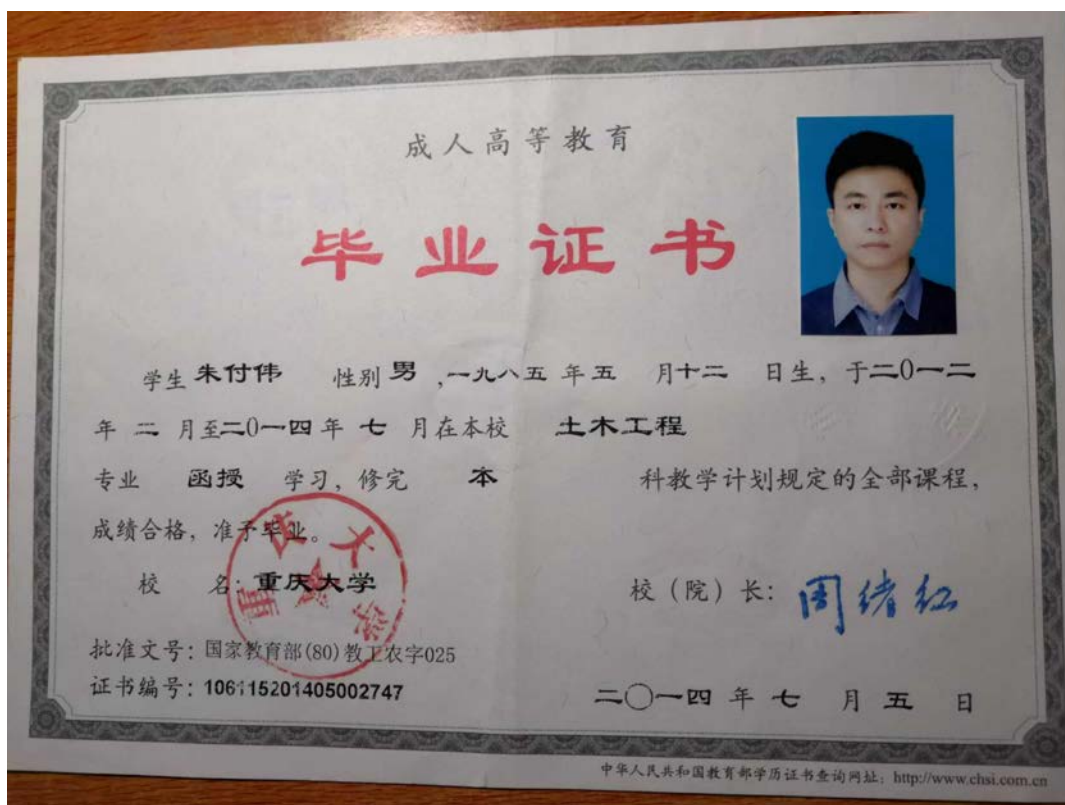 成人高等教育
毕业证书
学生 朱付伟 性别 男 ,一九八五 年 五 月十二 日生，于二0一二
年 二 月至二0一四 年 七 月在本校 土木工程
专业 函授 学习，修完 本 科教学计划规定的全部课程，
成绩合格，准予毕业。
校 名：重庆大学
校（院）长：周绪红
重庆大学
批准文号：国家教育部(80)教工农字025
证书编号：106115201405002747
二〇一四 年 七 月 五 日
中华人民共和国教育部学历证书查询网址：http://www.chsi.com.cn